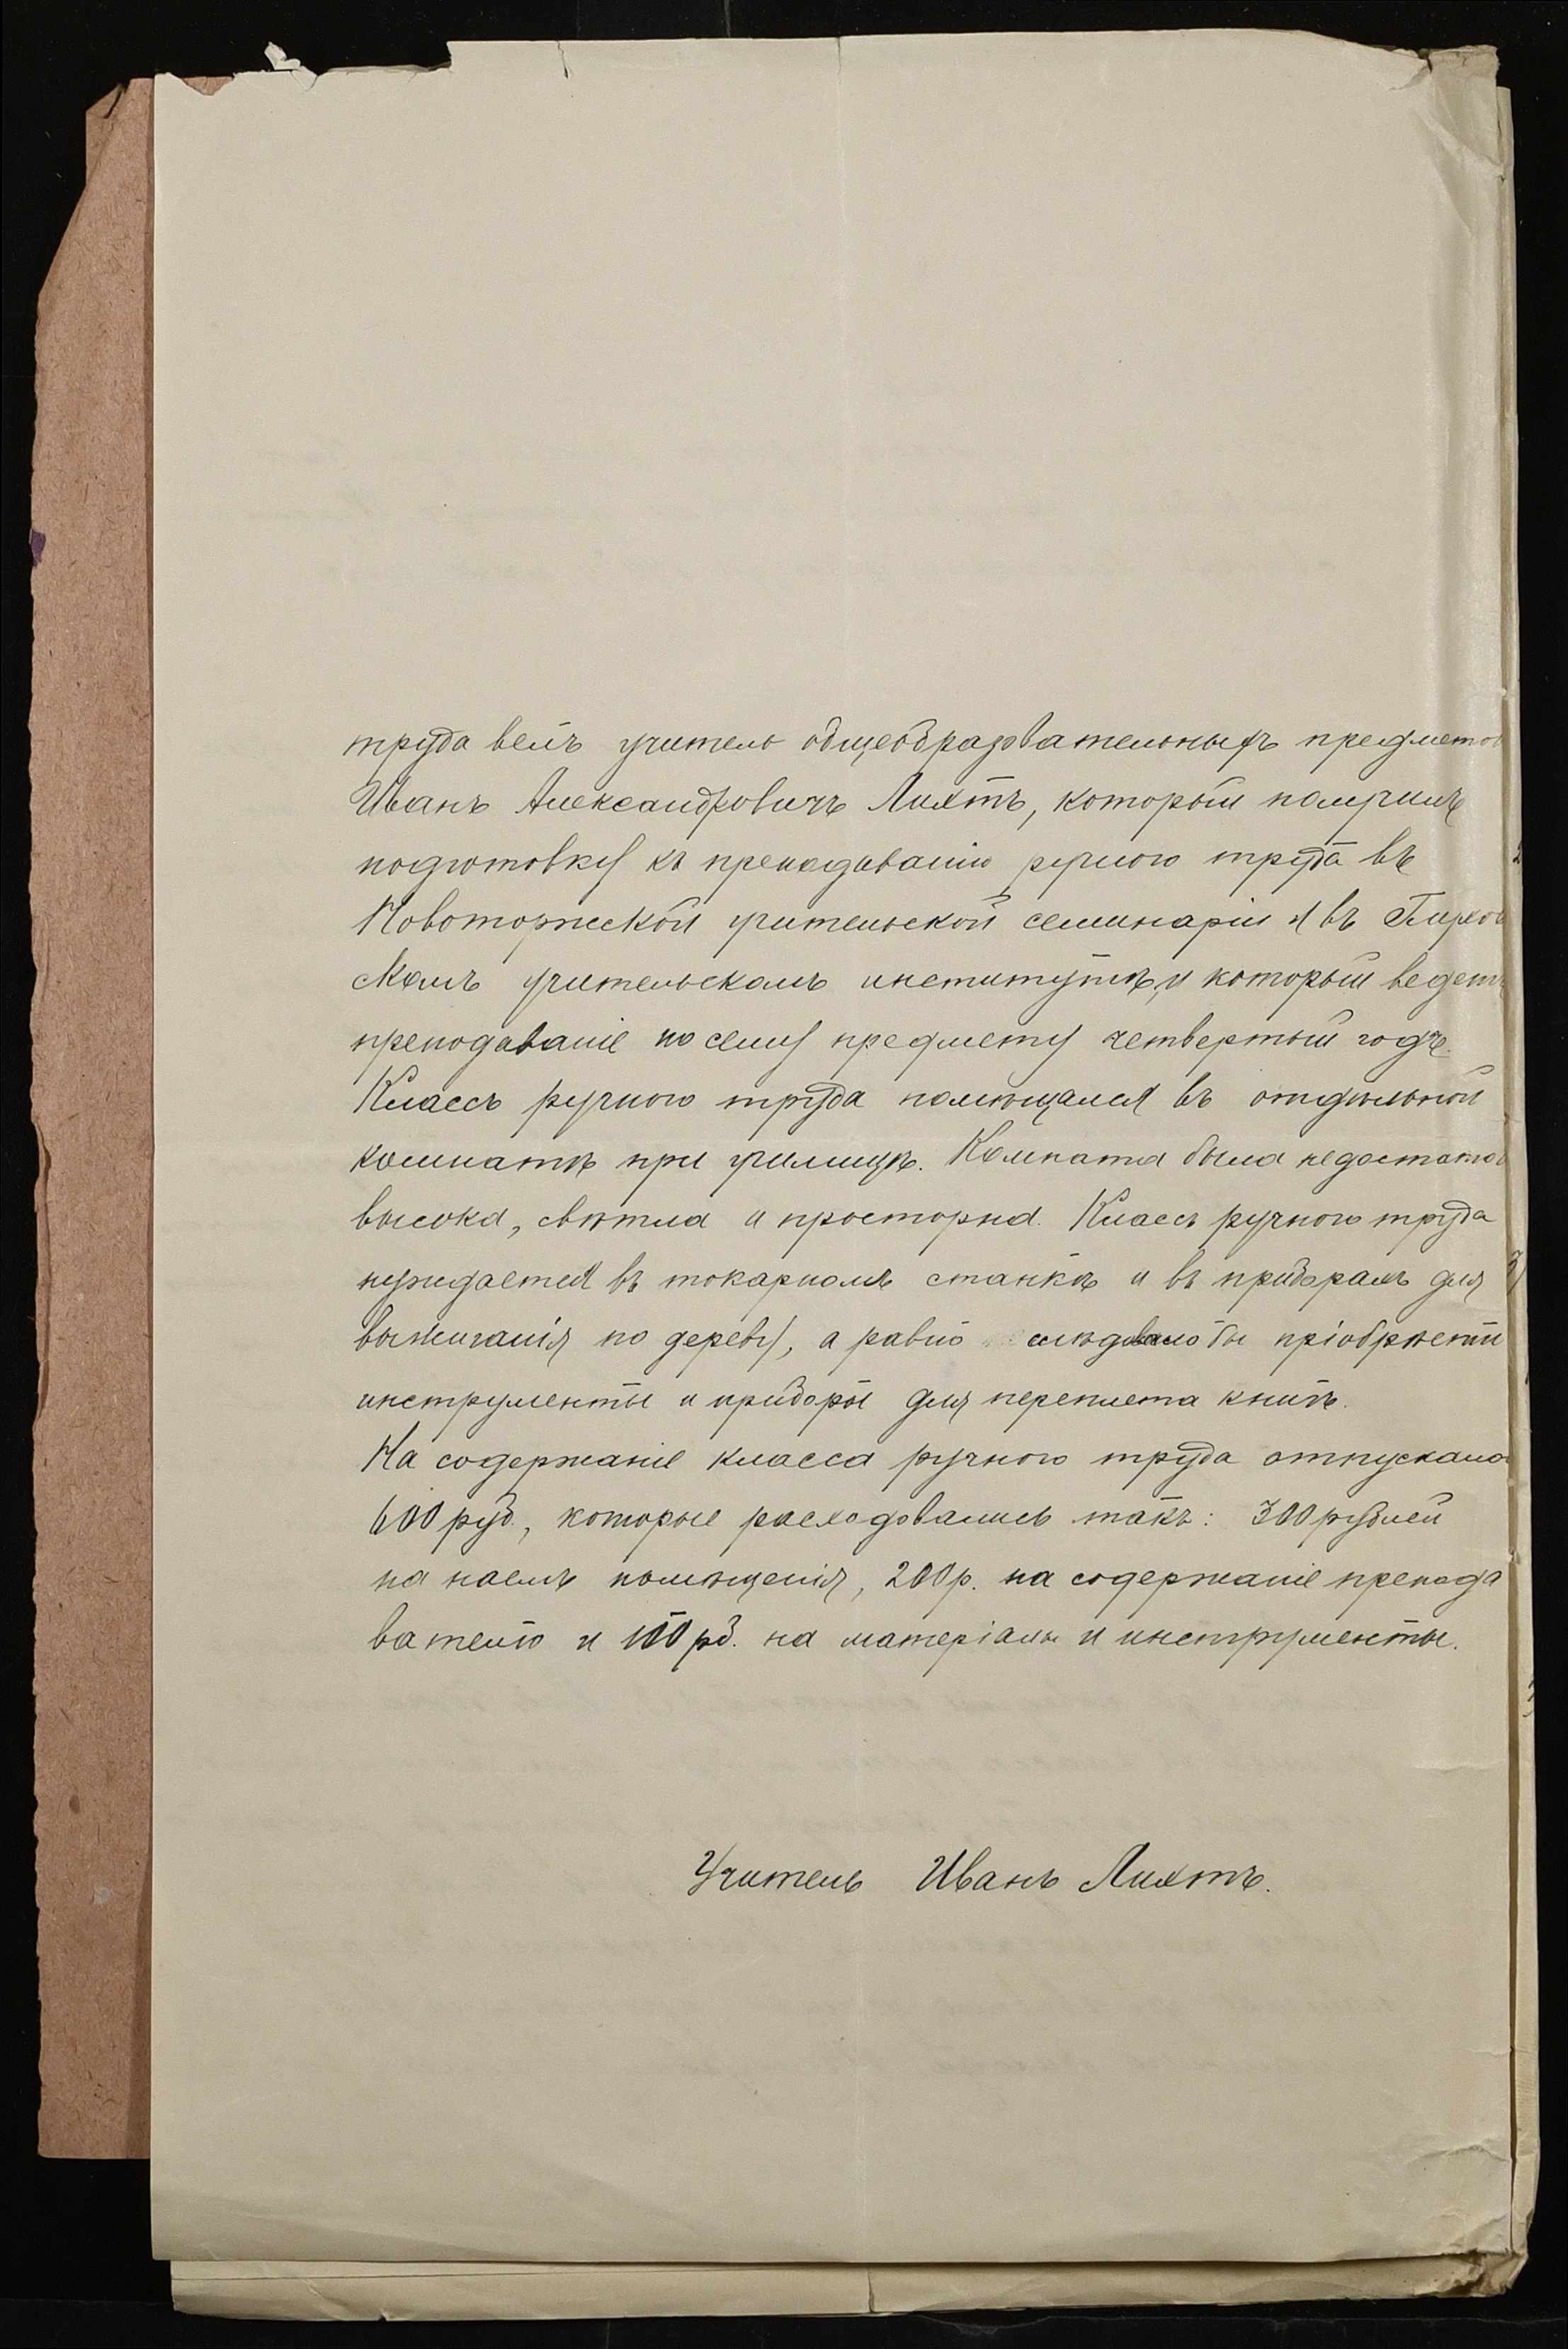 труда велъ учитель общеобразовательныхъ предметов
Иванъ Александровичъ Лихтъ, который получилъ
подготовку къ преподаванію ручного труда въ
Новоторжской учительской семинаріи и въ
скомъ учительскомъ институтѣ, и который ведетъ
преподаваніе по сему предмету четвертый годъ.
Классъ ручного труда помѣщался въ отдѣльной
комнатѣ при училищѣ. Комната была недостаточ
высока, свѣтла и просторна. Классъ ручного труда
нуждается въ токарномъ станкѣ и въ приборахъ для
выжиганія по дереву, а равно слѣдовало бы пріобрѣсти
инструменты и приборы для переплета книгъ.
На содержаніе класса ручного труда отпускало
600 руб., которые расходовались такъ: 300 рублей
на наемъ помѣщенія, 200 р. на содержаніе препода
вателю и 100 рб. на матеріалы и инструменты.
Учитель Иванъ Лихтъ.